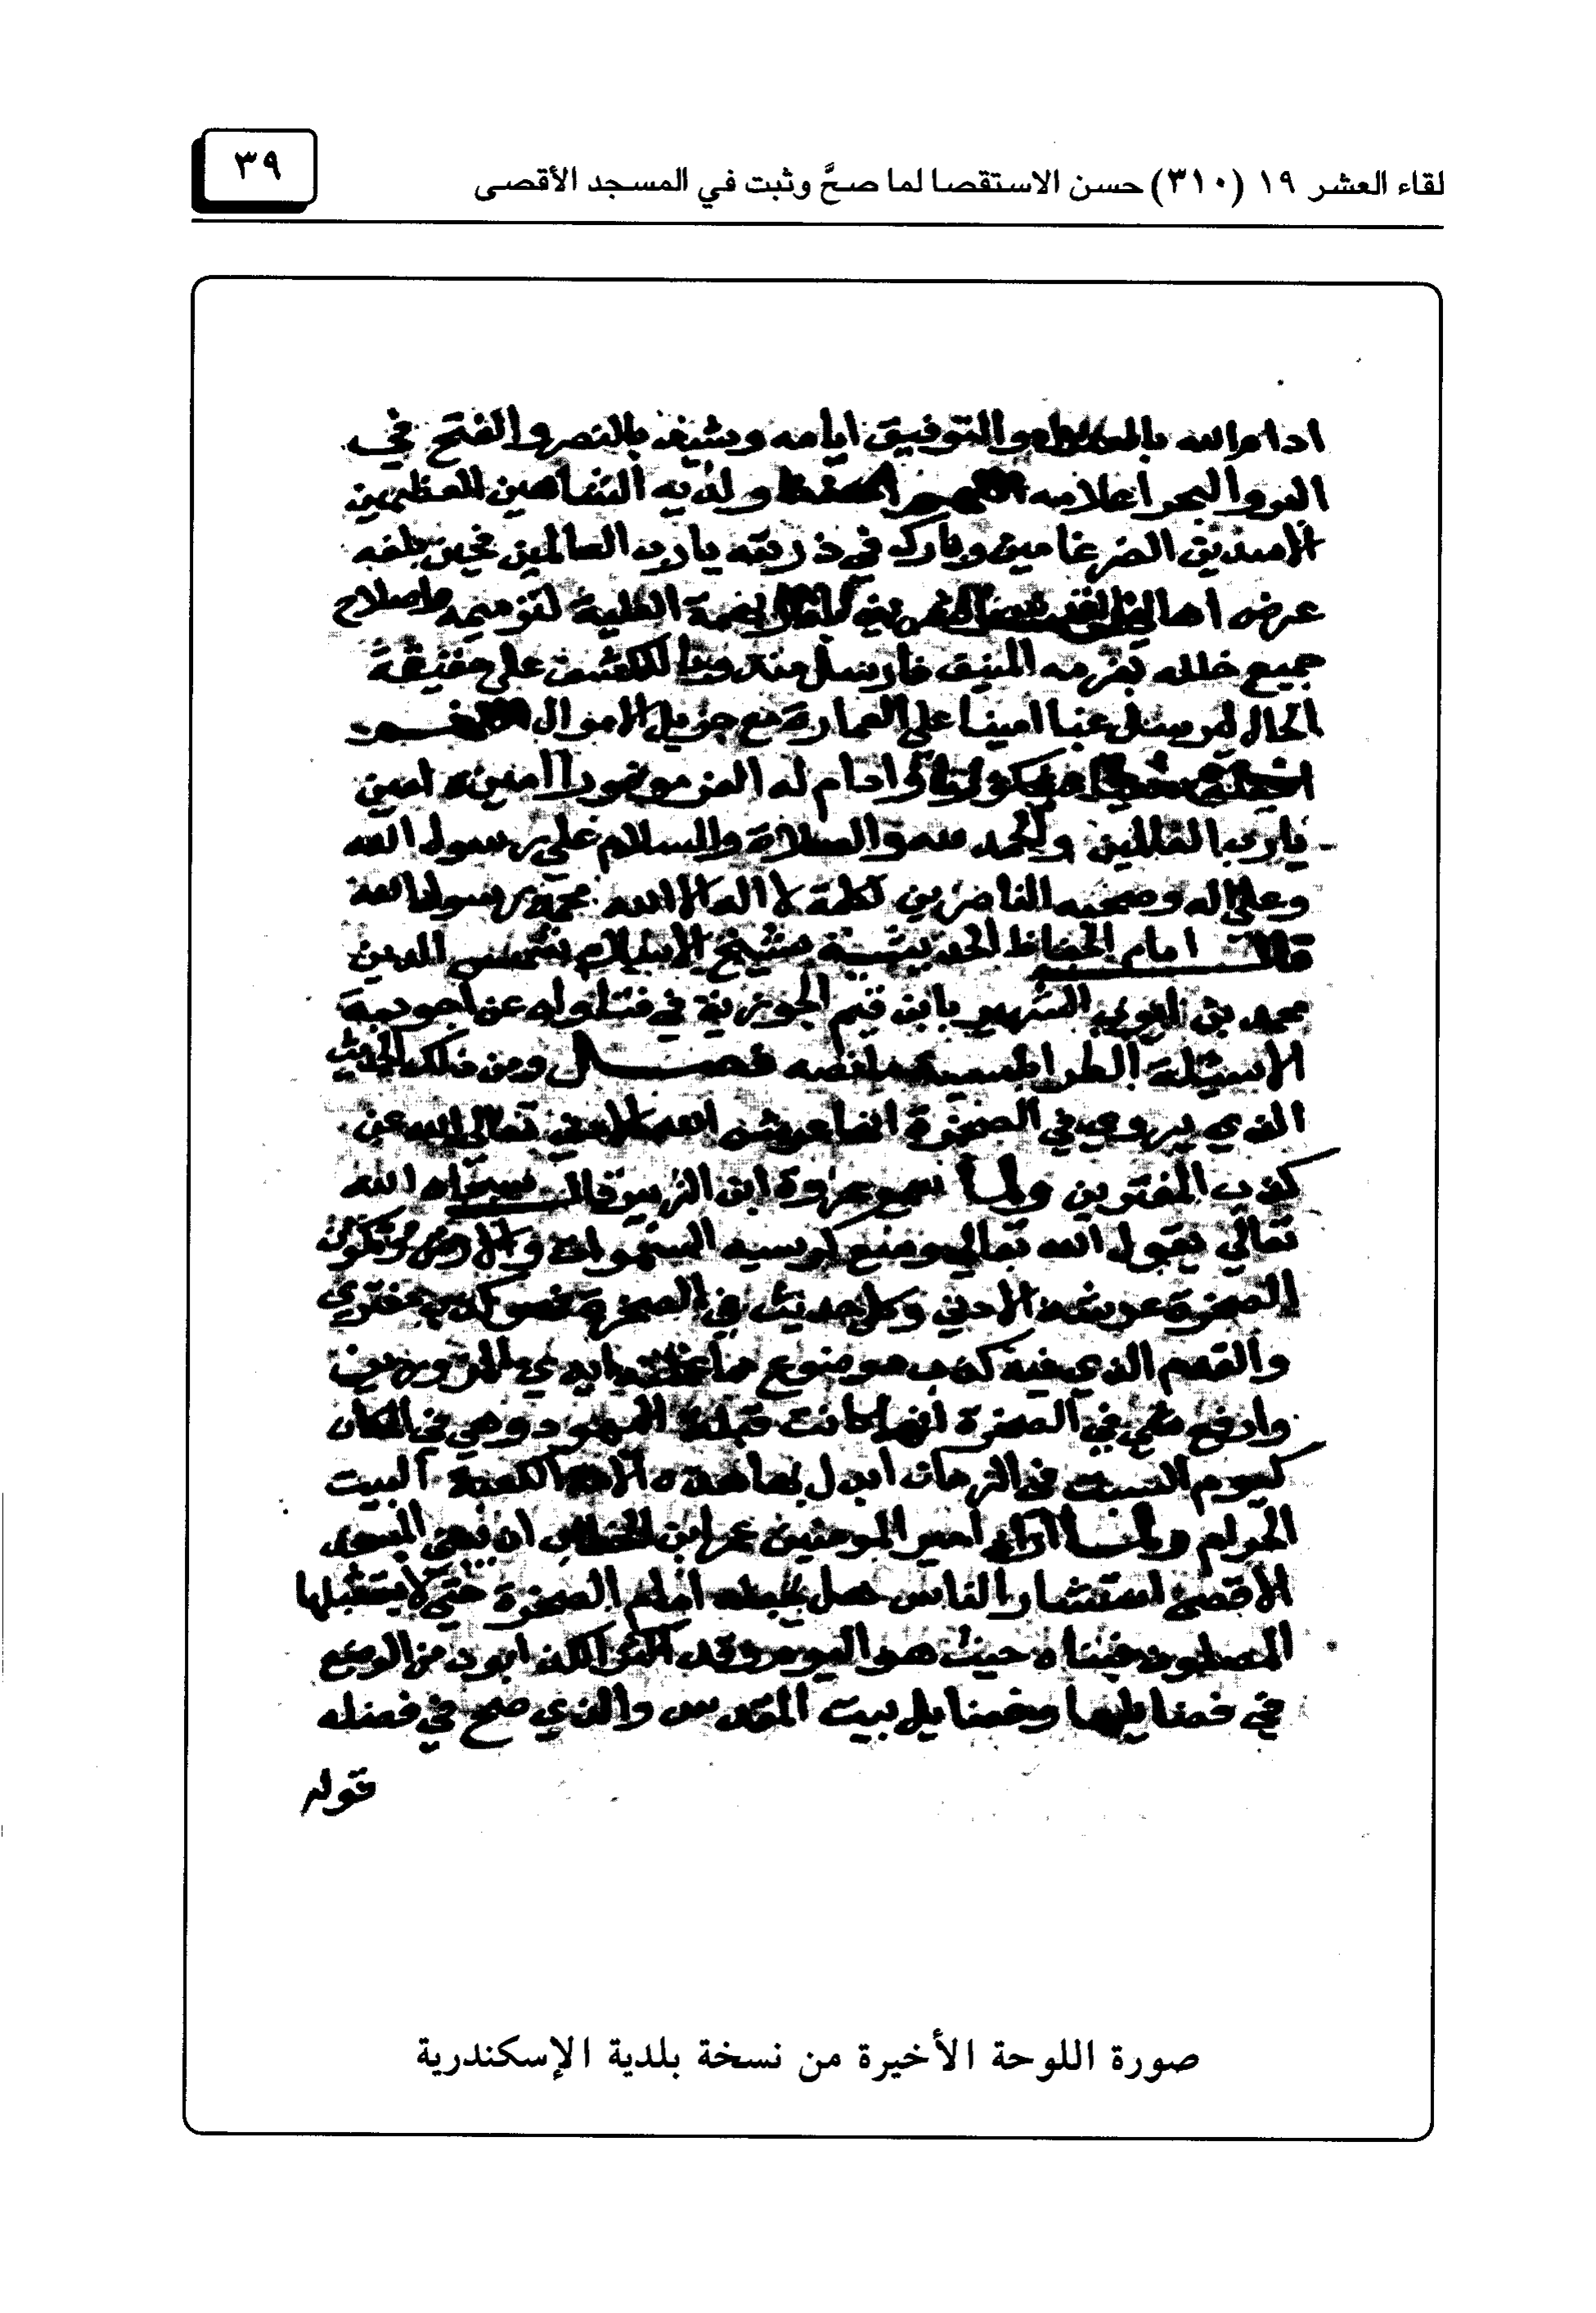 لقاء العشر ١٩ (٣١٠) حسن الاستقصا لما صحَّ وثبت في المسجد الأقصى
٣٩
ادام الله والتوفيق ايامه وشيد بالنصر والفتح في
البر والبحر اعلامه ولديه المعظمين
الاسدين الضرغامين وبارك في ذريته يا رب العالمين فحين بلغه
عرض العلية لترميمه واصلاح
جميع خلله بعزمه المنيف فارسل للكشف على حقيقة
الحال امينا على العمارة مع جزيل الاموال
ادام له العز امين
يا رب العالمين والحمد لله والصلاة والسلام على رسول الله
وعلى اله وصحبه الناصرين كلمة لا اله الا الله محمد رسول الله
قال امام الحفاظ شيخ الاسلام شمس الدين
محمد بن الشهير بابن قيم الجوزية في عن اجوبة
الاسئلة الطرابلسية ما نصه فصل ومن ذلك الحديث
الذي يروى في الصخرة انها عرش الله الادنى تعالى الله عن
كذب المفترين ولما سمع عروة ابن الزبير قال سبحان الله
تعالى يقول الله تعالى وسع كرسيه السموات والارض وتكون
الصخرة عرشه الادنى وكل حديث في الصخرة فهو كذب مفترى
والقدم الذي فيه كذب موضوع مما المزورين
وارفع شي في الصخرة انها كانت قبلة اليهود وهي في المكان
كيوم السبت في الزمان ابدل بها هذه الامة الكعبة البيت
الحرام ولما اراد امير المومنين عمر ابن الخطاب ان يبني المسجد
الاقصى استشار الناس هل يجعله امام الصخرة حتى لا يستقبلها
المصلون حيث هو اليوم وقد اكثر من الوضع
في فضايلها وفضايل بيت المقدس والذي صح في فضله
قوله
صورة اللوحة الأخيرة من نسخة بلدية الإسكندرية